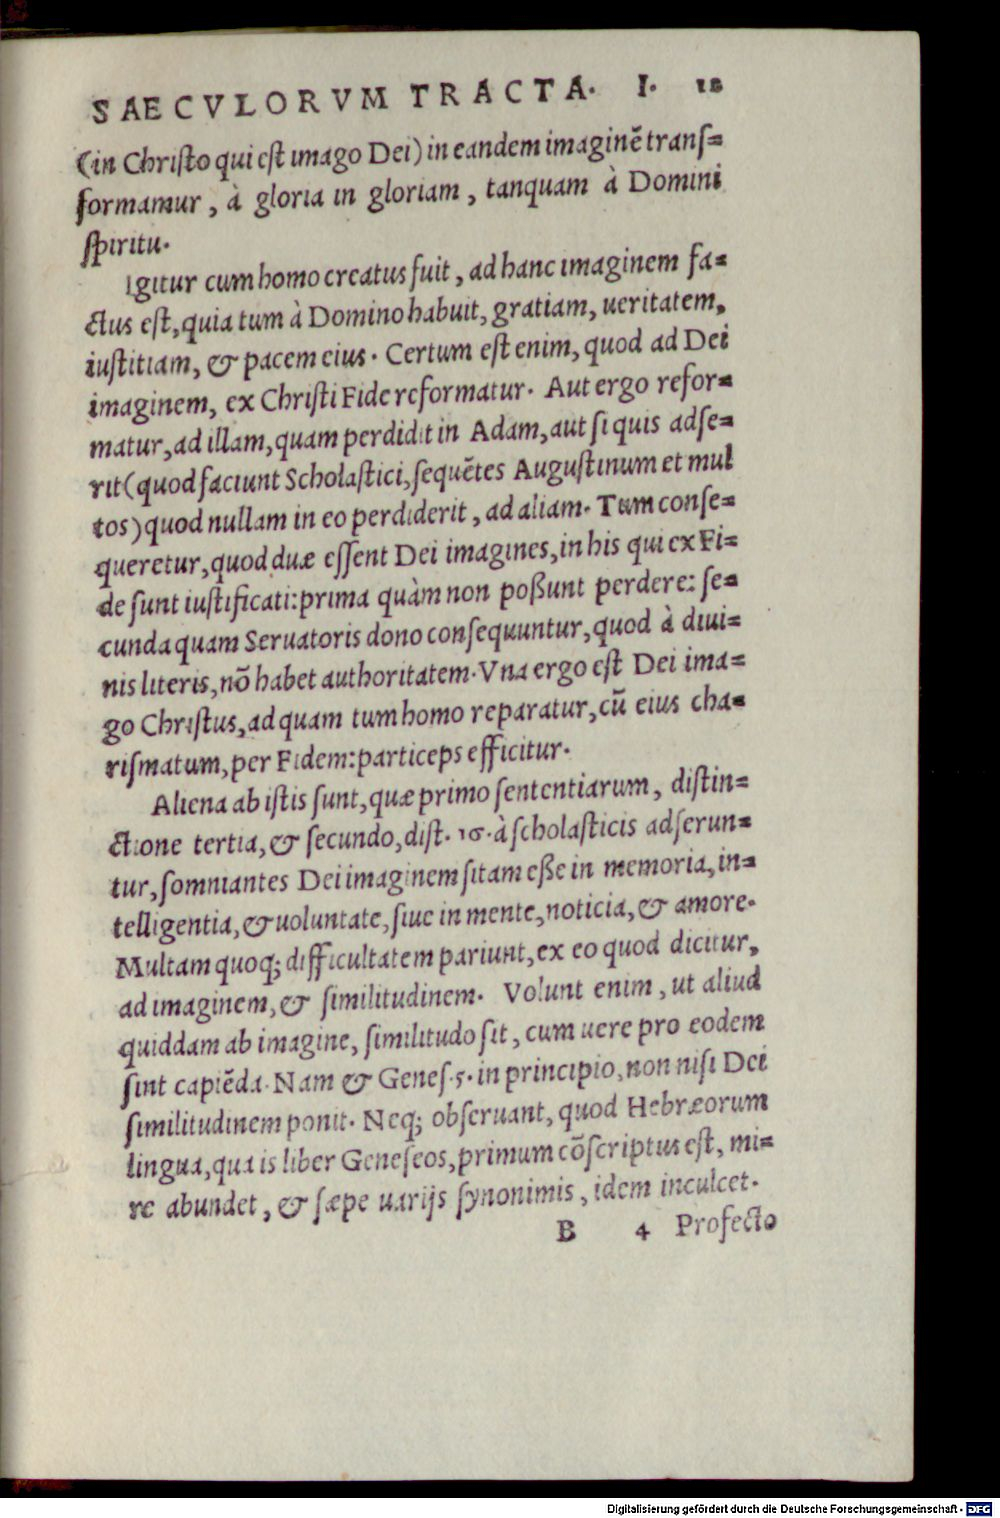 SAECVLORVM TRACTA. I. 12
(in Christo qui est imago Dei) in eandem imaginẽ trans=
formamur, à gloria in gloriam, tanquam à Domini
spiritu.
Igitur cum homo creatus fuit, ad hanc imaginem fa=
ctus est, quia tum à Domino habuit, gratiam, ueritatem,
iustitiam, & pacem eius. Certum est enim, quod ad Dei
imaginem, ex Christi Fide reformatur. Aut ergo refor=
matur, ad illam, quam perdidit in Adam, aut si quis adse=
rit (quod faciunt Scholastici, sequẽtes Augustinum et mul
tos) quod nullam in eo perdiderit, ad aliam. Tum conse=
queretur, quod duæ essent Dei imagines, in his qui ex Fi=
de sunt iustificati: prima quàm non poßunt perdere: se=
cunda quam Seruatoris dono consequuntur, quod à diui=
nis literis, nõ habet authoritatem. Vna ergo est Dei ima=
go Christus, ad quam tum homo reparatur, cũ eius cha=
rismatum, per Fidem: particeps efficitur.
Aliena ab istis sunt, quæ primo sententiarum, distin=
ctione tertia, & secundo, dist. 16. à scholasticis adserun=
tur, somniantes Dei imaginem sitam eße in memoria, in=
telligentia, & uoluntate, siue in mente, noticia, & amore.
Multam quoq; difficultatem pariunt, ex eo quod dicitur,
ad imaginem, & similitudinem. Volunt enim, ut aliud
quiddam ab imagine, similitudo sit, cum uere pro eodem
sint capiẽda. Nam & Genes. 5. in principio, non nisi Dei
similitudinem ponit. Neq; obseruant, quod Hebræorum
lingua, qua is liber Geneseos, primum cõscriptus est, mi=
re abundet, & sæpe uarijs synonimis, idem inculcet.
B 4 Profecto
Digitalisierung gefördert durch die Deutsche Forschungsgemeinschaft - DFG